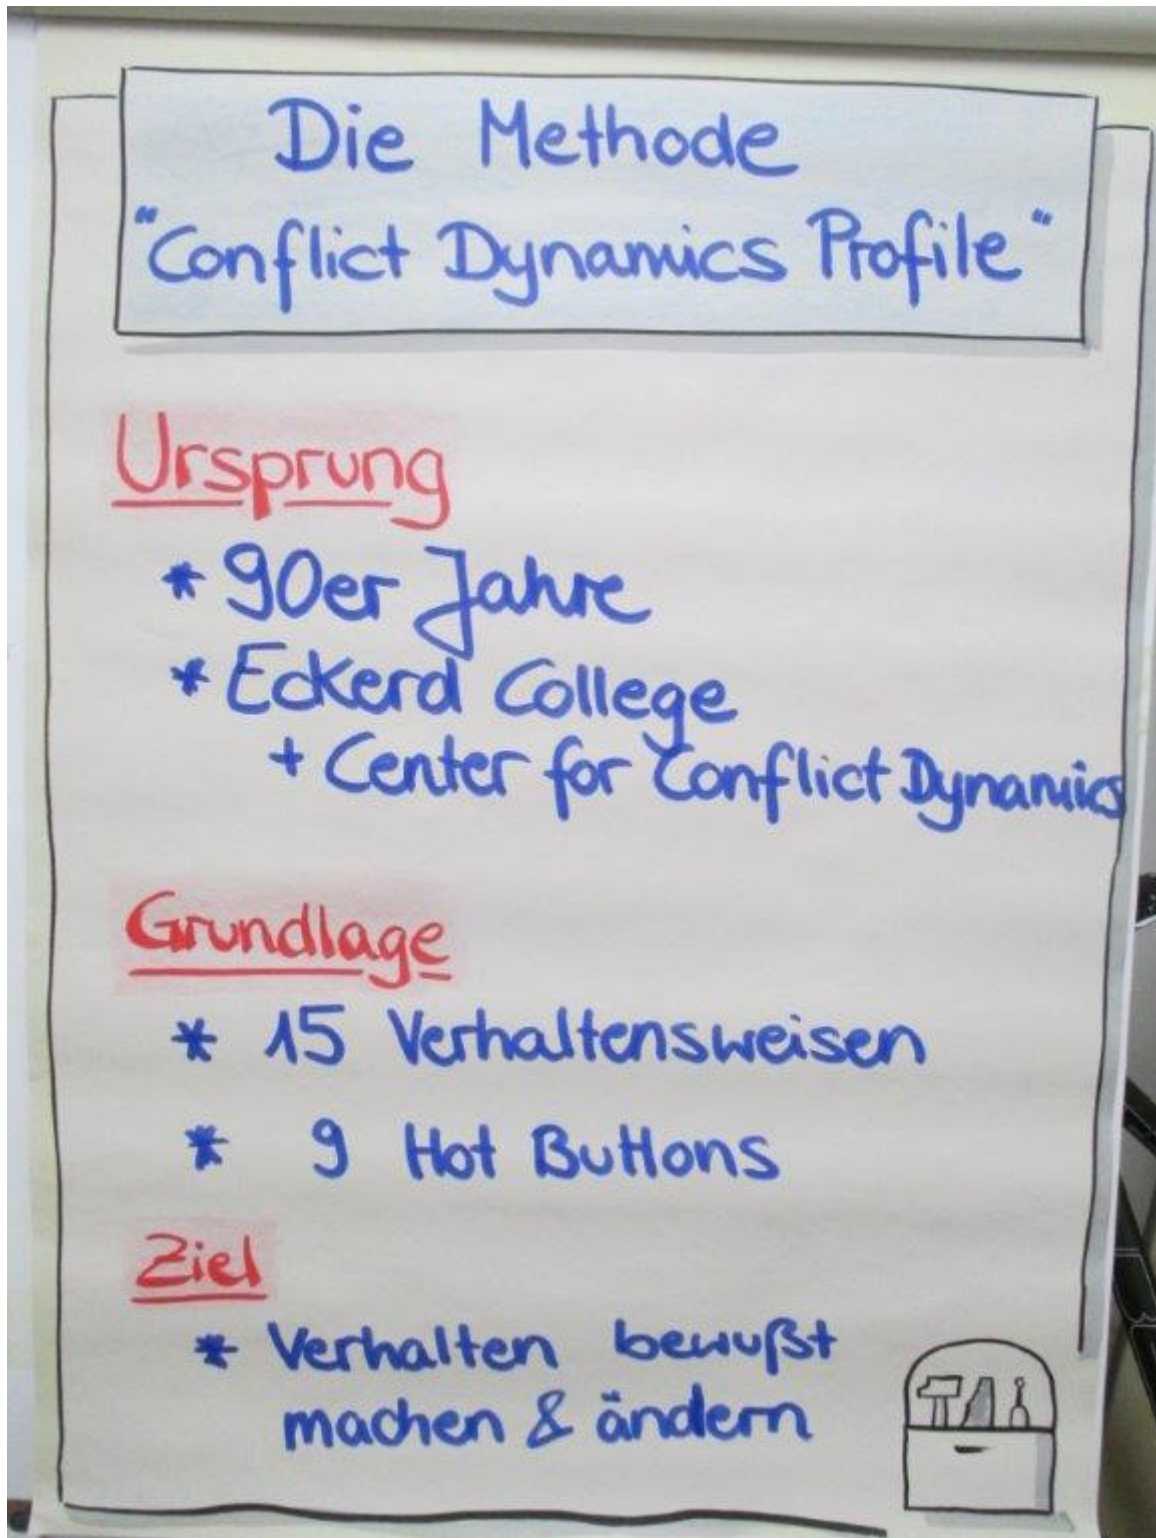 Die Methode
"Conflict Dynamics Profile"
Ursprung
* 90er Jahre
* Eckerd College
+ Center for Conflict Dynamics
Grundlage
* 15 Verhaltensweisen
* 9 Hot Buttons
Ziel
* Verhalten bewußt
machen & ändern